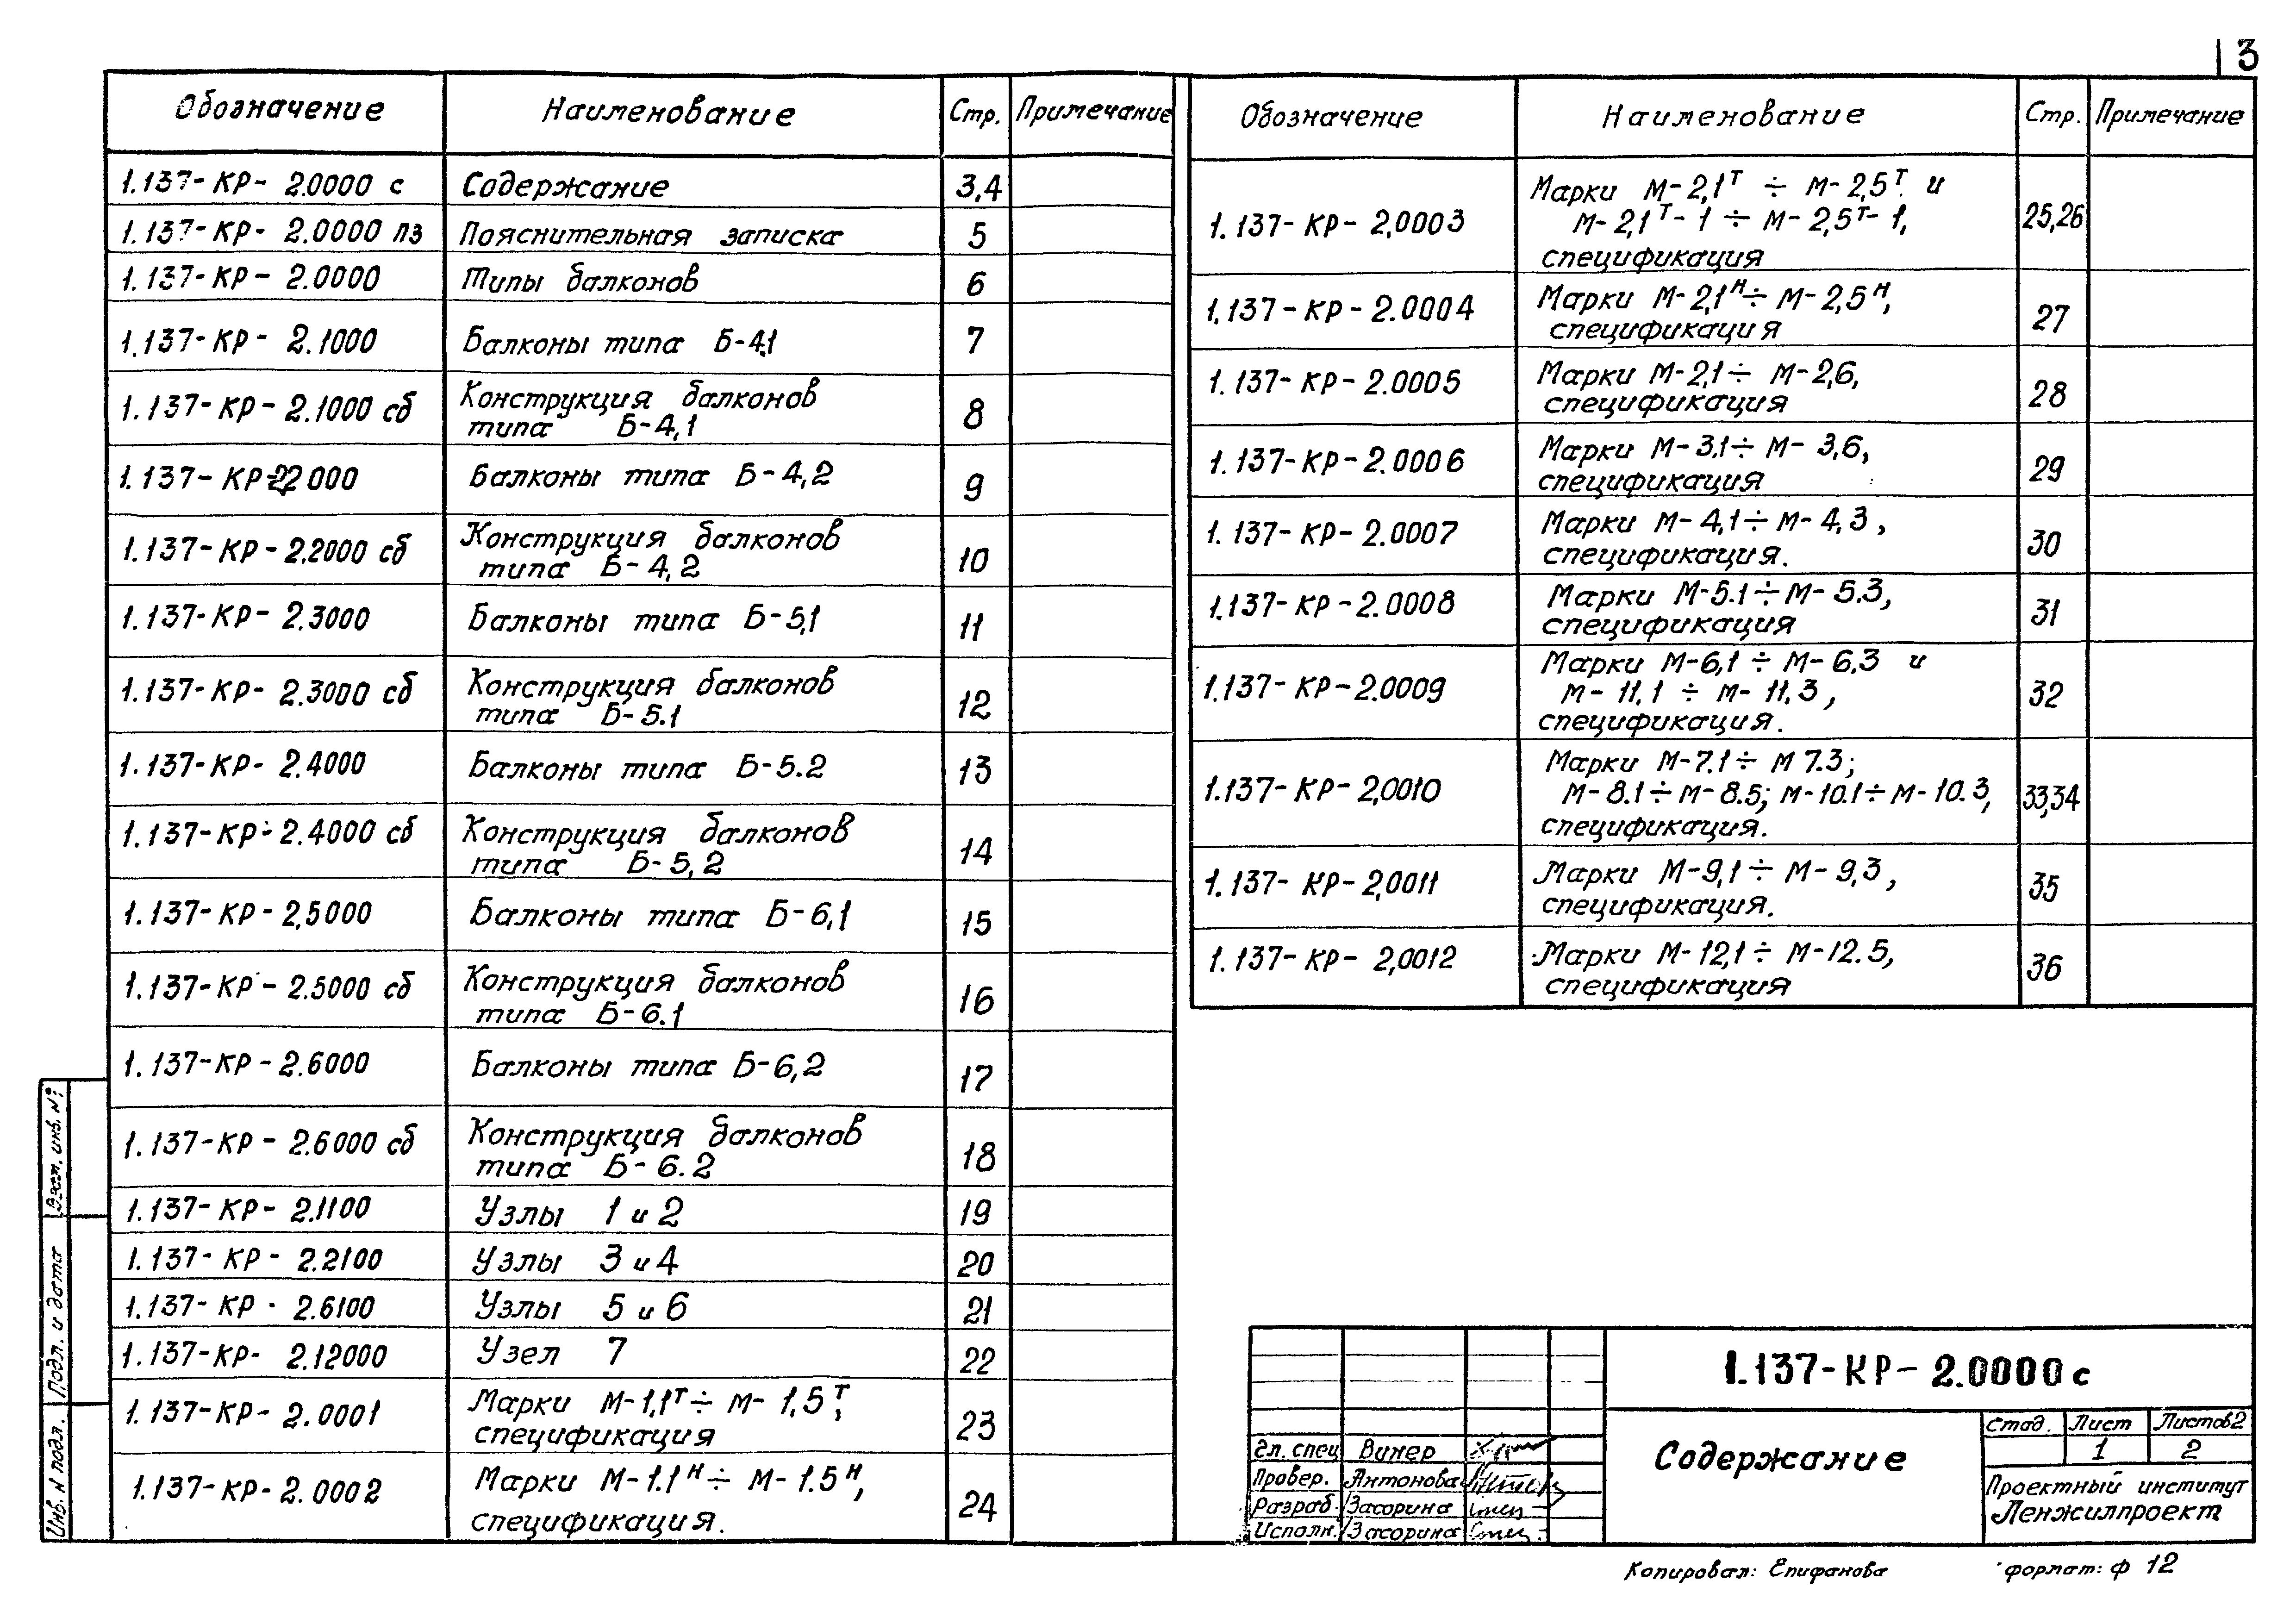 3
Обозначение Наименование Стр. Примечание
1.137-КР- 2.0000 с Содержание 3,4
1.137-КР- 2.0000 пз Пояснительная записка 5
1.137-КР- 2.0000 Типы балконов 6
1.137-КР- 2.1000 Балконы типа Б-4,1 7
1.137-КР- 2.1000 сб Конструкция балконов
типа Б-4,1 8
1.137-КР-2.2000 Балконы типа Б-4,2 9
1.137-КР-2.2000 сб Конструкция балконов
типа Б-4,2 10
1.137-КР- 2.3000 Балконы типа Б-5,1 11
1.137-КР- 2.3000 сб Конструкция балконов
типа Б-5.1 12
1.137-КР- 2.4000 Балконы типа Б-5.2 13
1.137-КР- 2.4000 сб Конструкция балконов
типа Б-5,2 14
1.137-КР-2,5000 Балконы типа Б-6,1 15
1.137-КР- 2.5000 сб Конструкция балконов
типа Б-6.1 16
1.137-КР-2.6000 Балконы типа Б-6,2 17
1.137-КР- 2.6000 сб Конструкция балконов
типа Б-6.2 18
1.137-КР- 2.1100 Узлы 1 и 2 19
1.137-КР- 2.2100 Узлы 3 и 4 20
1.137-КР- 2.6100 Узлы 5 и 6 21
1.137-КР- 2.12000 Узел 7 22
1.137-КР- 2.0001 Марки М-1,1ᵀ÷ М- 1,5ᵀ,
спецификация 23
1.137-КР-2.0002 Марки М-1.1ᴴ÷ М-1.5ᴴ,
спецификация. 24
Обозначение Наименование Стр. Примечание
1.137-КР-2,0003 Марки М-2,1ᵀ ÷ М-2,5ᵀ. и
М-2,1ᵀ-1 ÷ М-2,5ᵀ-1,
спецификация 25,26
1.137-КР-2.0004 Марки М-2,1ᴴ÷ М-2,5ᴴ,
спецификация 27
1.137-КР-2.0005 Марки М-2,1÷ М-2,6,
спецификация 28
1.137-КР-2.0006 Марки М-3,1÷ М- 3,6,
спецификация 29
1.137-КР-2.0007 Марки М-4,1÷М-4,3,
спецификация. 30
1.137-КР-2.0008 Марки М-5.1÷М-5.3,
спецификация 31
1.137-КР-2.0009 Марки М-6,1 ÷ М-6.3 и
М-11,1 ÷ М-11,3,
спецификация. 32
1.137-КР-2,0010 Марки М-7.1÷ М 7.3;
М-8.1÷М-8.5; М-10.1÷М-10.3,
спецификация. 33,34
1.137-КР-2,0011 Марки М-9,1÷ М-9,3,
спецификация. 35
1.137-КР- 2,0012 Марки М-12,1÷ М-12.5,
спецификация 36
Взам. инв. №
Подл. и дата
Инв. N подл.
1.137-КР-2.0000 с
Содержание
Стад. Лист Листов 2
1 2
Гл. спец Винер
Провер. Антонова
Разраб. Засорина
Исполн. Засорина
Проектный институт
Ленжилпроект
Копировал: Епифанова формат: ф 12